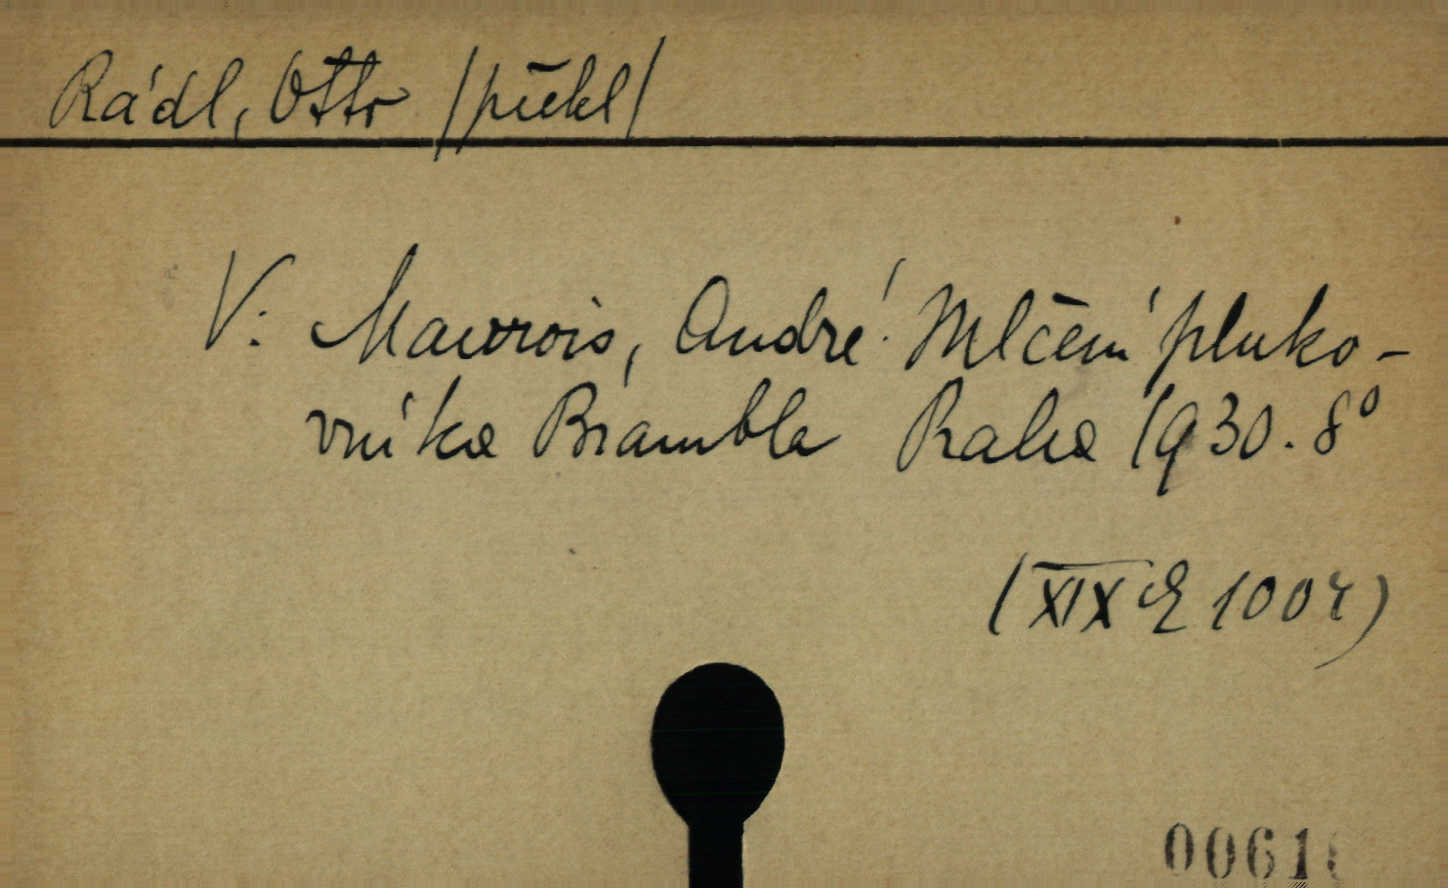 Rádl, Otto /překl/
V: Maurois, André: Mlčení pluko-
vníka Brambla Praha 1930. 8°
(XIX E 1004)
0061